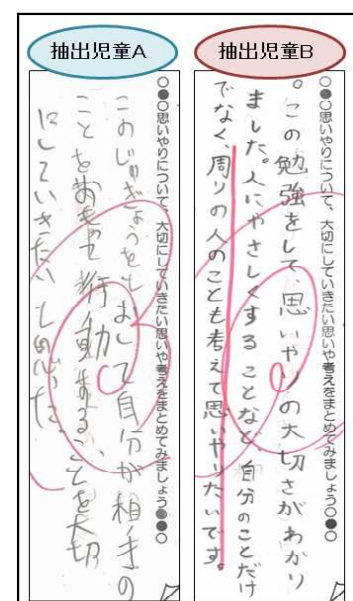 抽出児童A
○●○思いやりについて、大切にしていきたい思いや考えをまとめてみましょう○●○
このじゅぎょうをとおして自分が相手の
ことをおもって行動することを大切
にしていきたいと思った。
抽出児童B
○●○思いやりについて、大切にしていきたい思いや考えをまとめてみましょう○●○
。この勉強をして、思いやりの大切さがわかり
ました。人にやさしくすることなど、自分のことだけ
でなく、周りの人のことも考えて思いやりたいです。